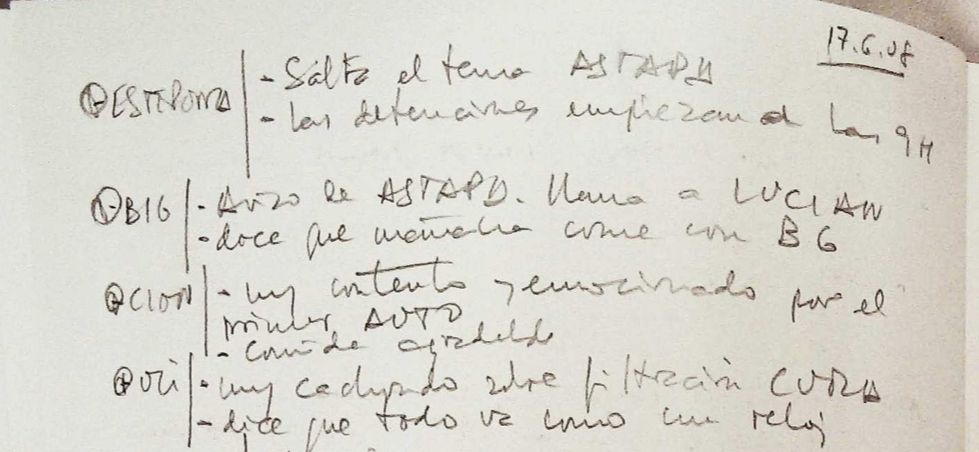 17.6.08
ESTEPONA - Salta el tema ASTAPA
- las detenciones empiezan a las 9H
BIG - Aviso de ASTAPA. llama a LUCIAN
- dice que mañana come con BG
- muy contento y emocionado por el
primer AUTO
- comida agradable
- muy cachondo sobre filtración
- dice que todo va como un reloj